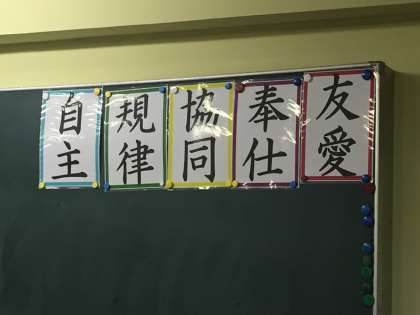 友愛
奉仕
協同
規律
自主